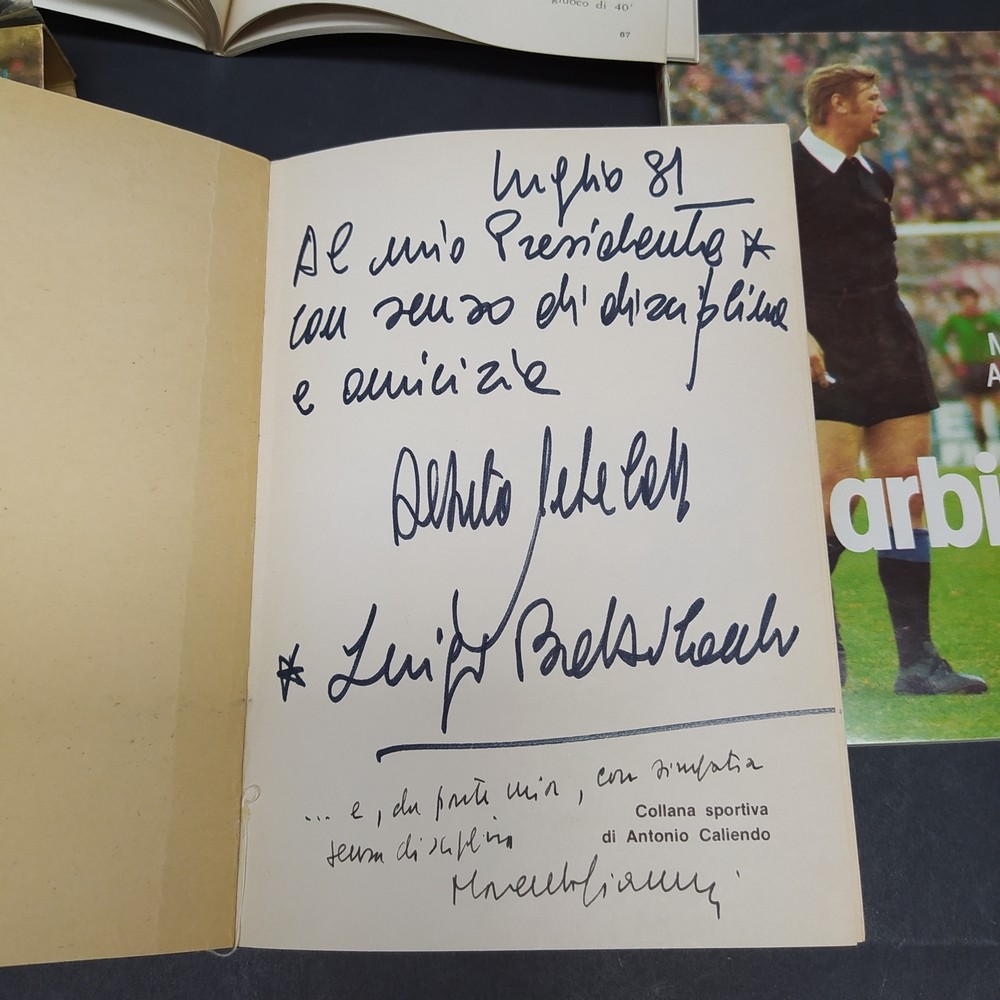 giuoco di 40'
87
luglio 81
Al mio Presidente *
con senso di disciplina
e amicizia
Alberto
* Luigi
... e, da parte mia, con simpatia
senza disciplina
Collana sportiva
di Antonio Caliendo
N
A
arbi